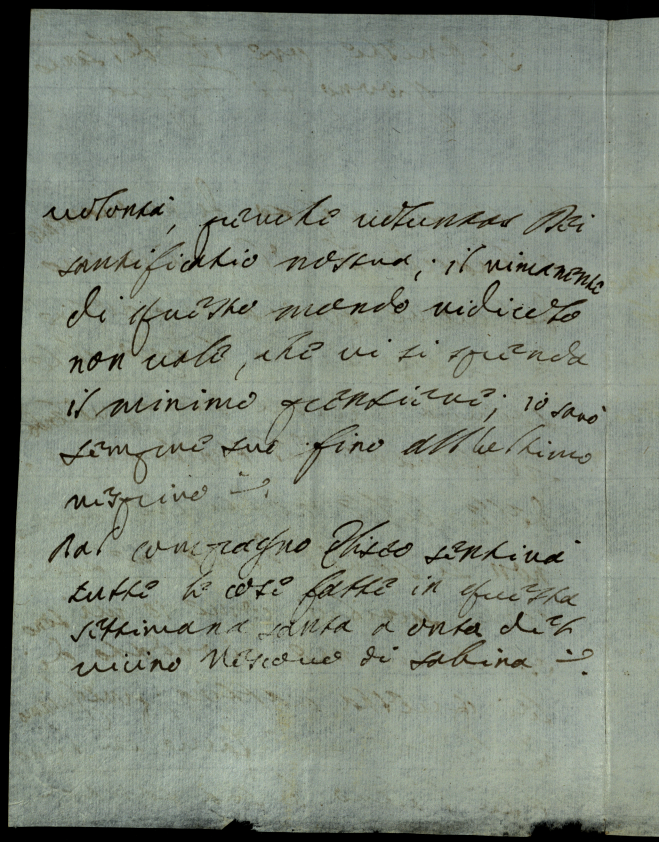 volontà, perche voluntas Dei
santificatio nostra; il rimanente
di questo mondo ridicolo
non vale, che vi si spenda
il minimo pensiere; io sarò
sempre suo fino all'ultimo
respiro
Dal compagno Eliseo sentirà
tutte le cose fatte in questa
settimana santa a onta del
vicino Vescovo di Sabina